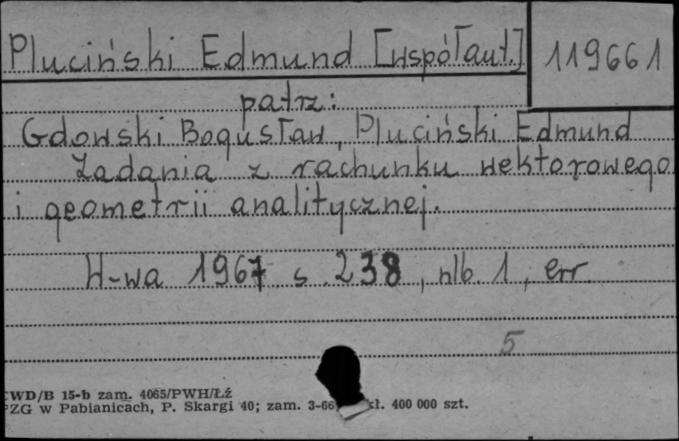 Pluciński Edmund [współaut.]
119661
patrz:
Gdowski Bogusław, Pluciński Edmund
Zadania z rachunku wektorowego
i geometrii analitycznej.
W-wa 1967 s. 238, nlb. 1, err
5
CWD/B 15-b zam. 4065/PWH/Łź
PZG w Pabianicach, P. Skargi 40; zam. 3-66 kł. 400 000 szt.